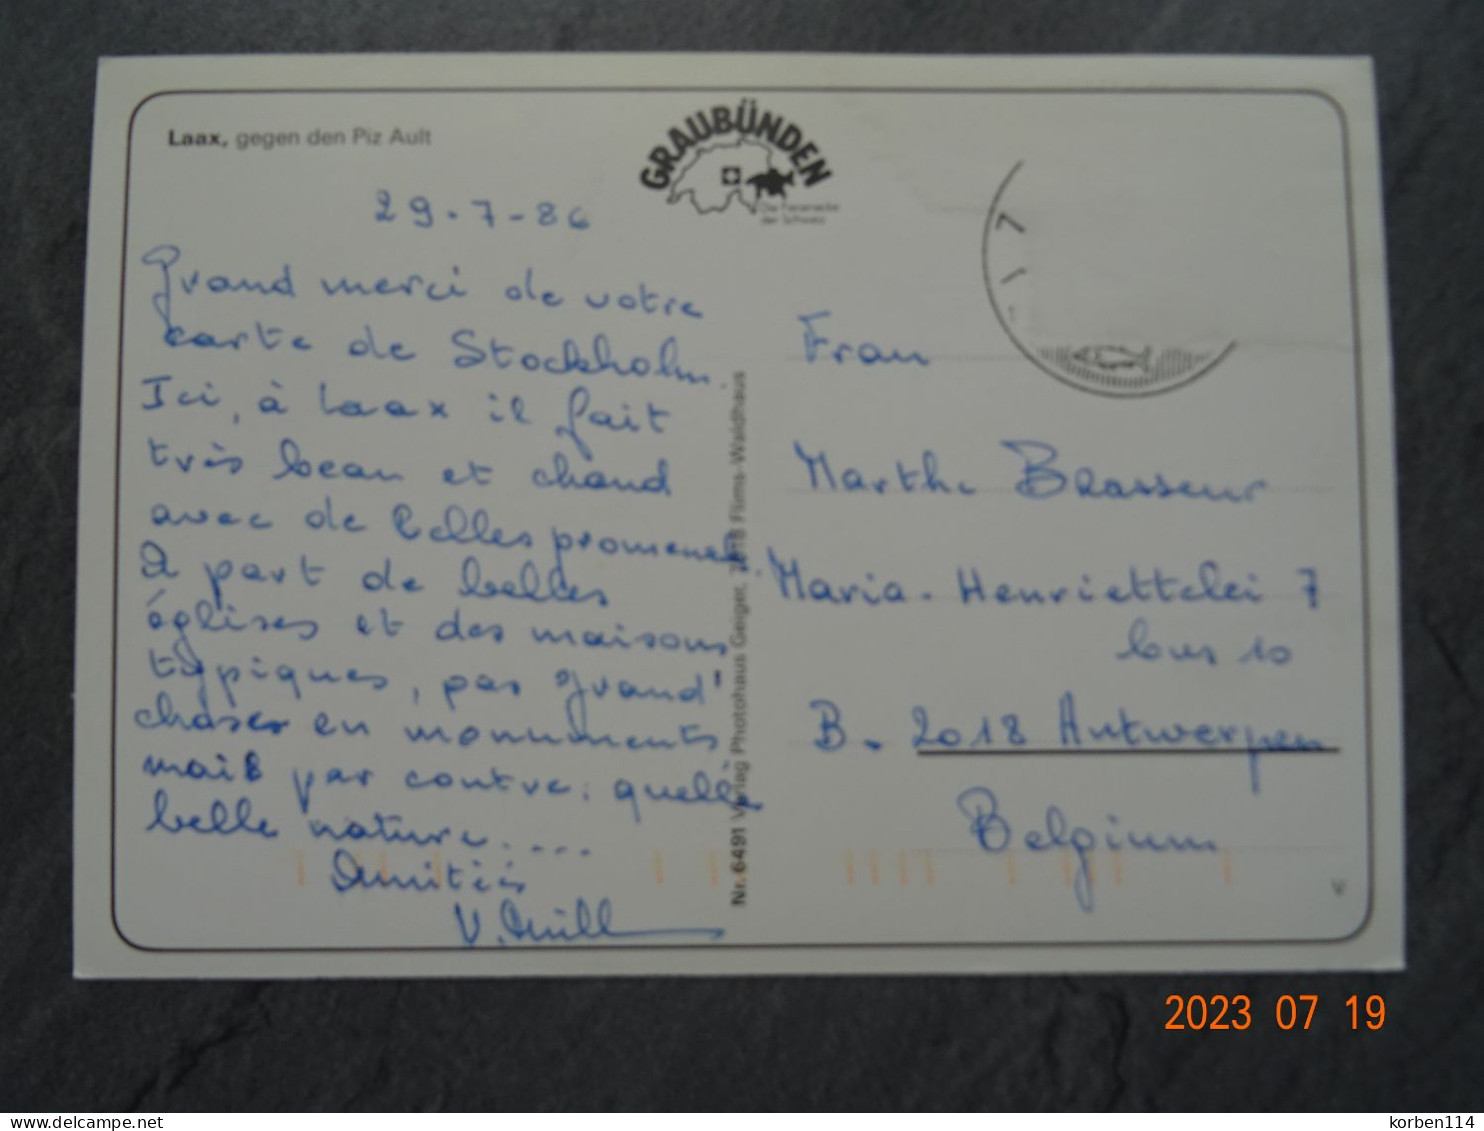 Laax, gegen den Piz Ault
GRAUBÜNDEN
Die Ferienecke
der Schweiz
29-7-86
Grand merci de votre
carte de Stockholm.
Ici, à Laax il fait
très beau et chaud
avec de belles promenad.
A part de belles
églises et des maisons
typiques, pas grand'
choses en monuments
mais par contre: quelle
belle nature....
Amitiés
Nr. 6491 Verlag Photohaus Geiger, 7018 Flims-Waldhaus
Frau
Marthe Brasseur
Maria-Henriettelei 7
bus 10
B. 2018 Antwerpen
Belgium
V
7
2023 07 19
delcampe.net
korben114